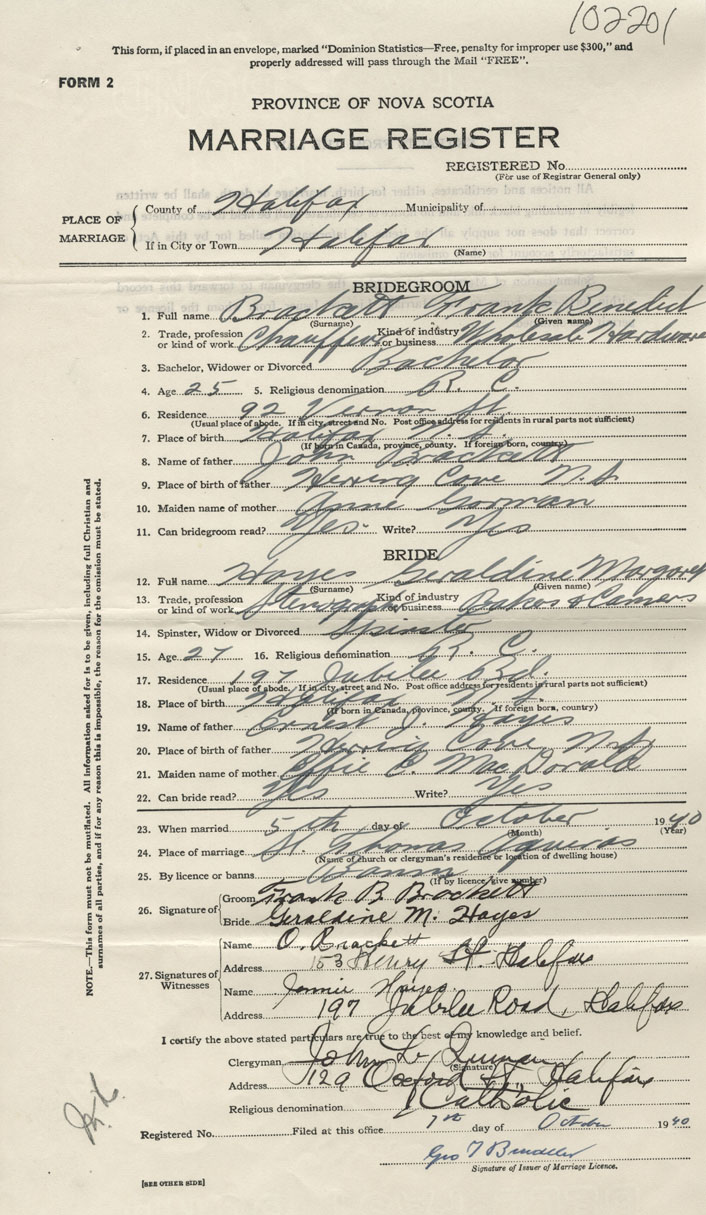 102201
This form, if placed in an envelope, marked "Dominion Statistics—Free, penalty for improper use $300," and
properly addressed will pass through the Mail "FREE".
FORM 2
PROVINCE OF NOVA SCOTIA
MARRIAGE REGISTER
REGISTERED No.
(For use of Registrar General only)
PLACE OF MARRIAGE
County of Halifax Municipality of
If in City or Town Halifax
(Name)
BRIDEGROOM
1. Full name Brackett Frank Benedict
(Surname) (Given name)
2. Trade, profession or kind of work Chauffeur Kind of industry or business Wholesale Hardware
3. Bachelor, Widower or Divorced Bachelor
4. Age 25 5. Religious denomination R. C.
6. Residence 92 Vernon St.
(Usual place of abode. If in city, street and No. Post office address for residents in rural parts not sufficient)
7. Place of birth Halifax N.S.
(If born in Canada, province, county. If foreign born, country)
8. Name of father John Brackett
9. Place of birth of father Herring Cove N.S
10. Maiden name of mother Anne Gorman
11. Can bridegroom read? Yes. Write? Yes
BRIDE
12. Full name Hayes Geraldine Margaret
(Surname) (Given name)
13. Trade, profession or kind of work Stenographer Kind of industry or business
14. Spinster, Widow or Divorced Spinster
15. Age 27 16. Religious denomination R. C.
17. Residence 197 Jubilee Rd.
(Usual place of abode. If in city, street and No. Post office address for residents in rural parts not sufficient)
18. Place of birth Halifax N.S.
(If born in Canada, province, county. If foreign born, country)
19. Name of father Ernest J. Hayes
20. Place of birth of father Herring Cove, N.S.
21. Maiden name of mother Effie C. MacDonald
22. Can bride read? Yes Write? Yes
23. When married 5th day of October 1940
(Month) (Year)
24. Place of marriage St. Thomas Aquinas
(Name of church or clergyman's residence or location of dwelling house)
25. By licence or banns Banns
(If by licence give number)
26. Signature of
Groom Frank B Brackett
Bride Geraldine M. Hayes
27. Signatures of Witnesses
Name O. Brackett
Address 153 Henry St. Halifax
Name Hayes
Address 197 Jubilee Road, Halifax
I certify the above stated particulars are true to the best of my knowledge and belief.
Clergyman John L.
(Signature)
Address 129 Oxford St. Halifax
Religious denomination Catholic
Registered No. Filed at this office 7th day of October 1940
Geo
Signature of Issuer of Marriage Licence.
[SEE OTHER SIDE]
NOTE.—This form must not be mutilated. All information asked for is to be given, including full Christian and
surnames of all parties, and if for any reason this is impossible, the reason for the omission must be stated.